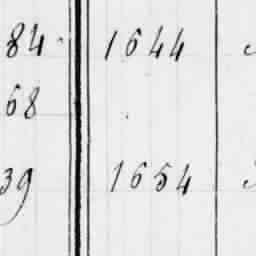 84 1644
68
39 1654